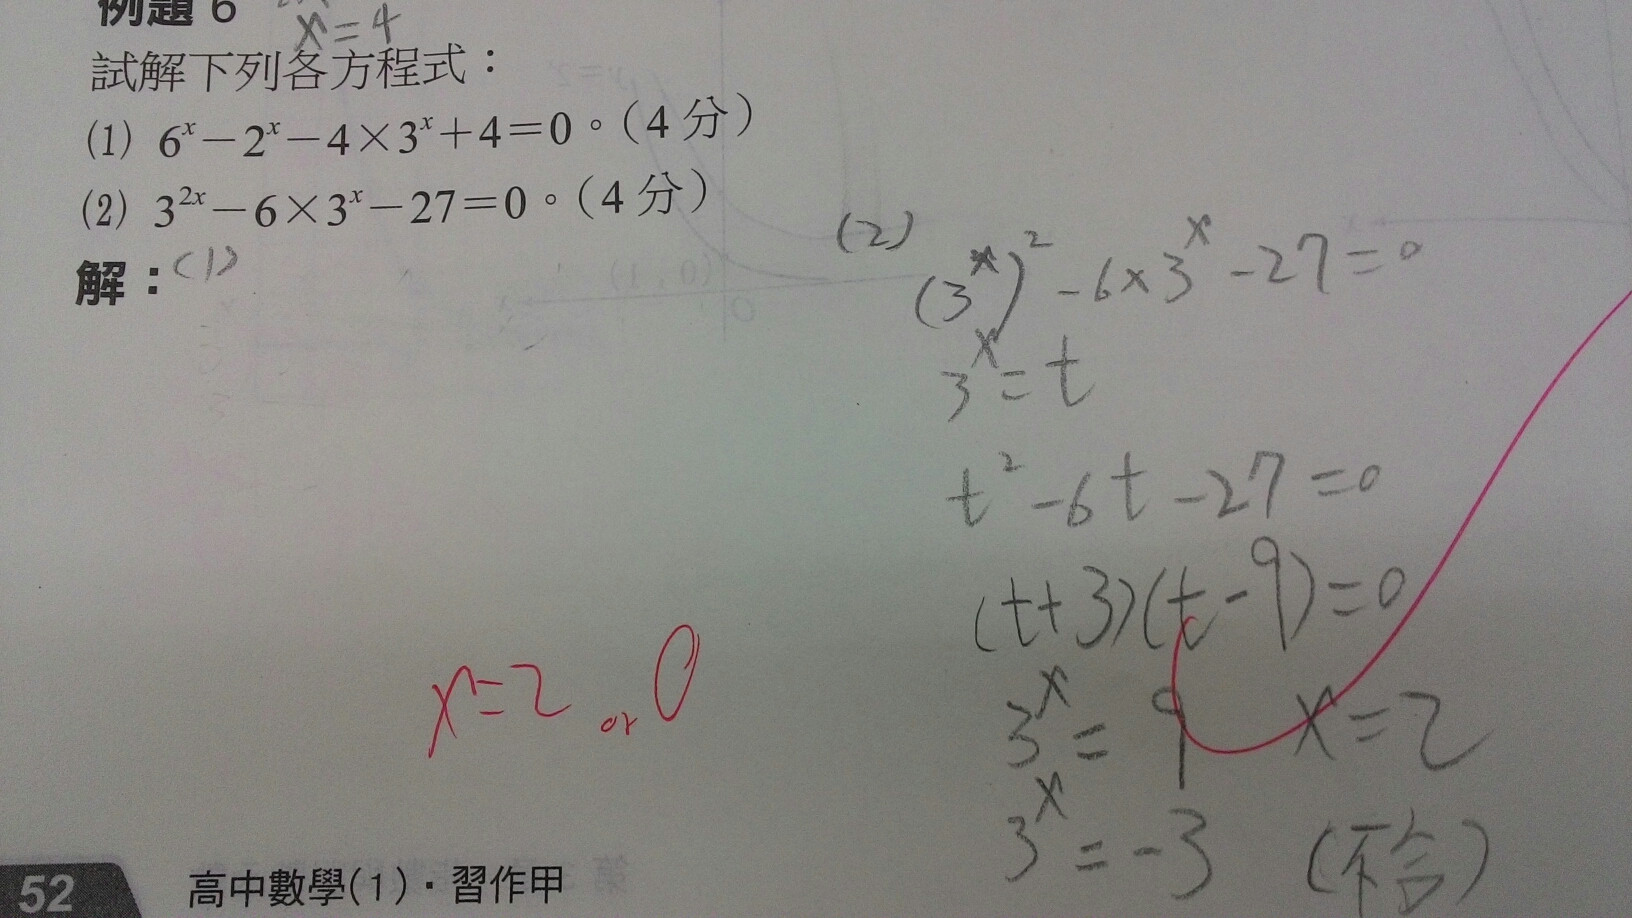 例題 6
x=4
試解下列各方程式：
(1) 6ˣ－2ˣ－4×3ˣ＋4＝0。（4 分）
(2) 3²ˣ－6×3ˣ－27＝0。（4 分）
解：(1)
x=2 or 0
(2)
(3ˣ)²-6×3ˣ-27=0
3ˣ=t
t²-6t-27=0
(t+3)(t-9)=0
3ˣ=9 x=2
3ˣ=-3 (不合)
52 高中數學(1)・習作甲